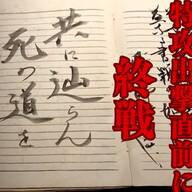 特攻出撃直前に
終戦
共に辿らん
死の道を